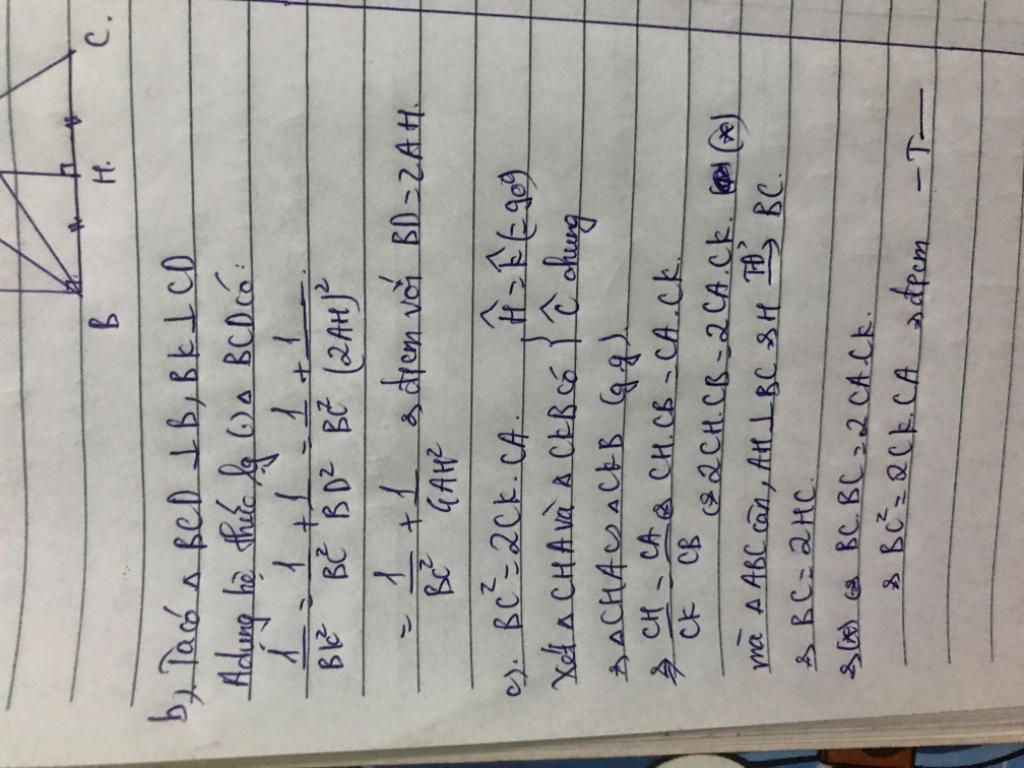 C.
H.
B
b, Ta có △ BCD ⊥ B, BK ⊥ CD
Adung hệ thức lg (,) △ BCD có:
1/BK² = 1/BC² + 1/BD² = 1/BC² + 1/(2AH)²
= 1/BC² + 1/4AH² => đpcm với BD = 2AH.
c). BC² = 2CK. CA.
Xét △ CHA và △ CKB có { Ĥ = K̂ (= 90°)
Ĉ chung
=> △ CHA ∽ △ CKB (g.g).
=> CH/CK = CA/CB => CH.CB = CA.CK.
<=> 2CH.CB = 2CA.CK. (*)
mà △ ABC cân, AH ⊥ BC => H TĐ→ BC.
=> BC = 2HC.
=> (*) <=> BC.BC = 2CA.CK.
=> BC² = 2CK.CA => đpcm – T —